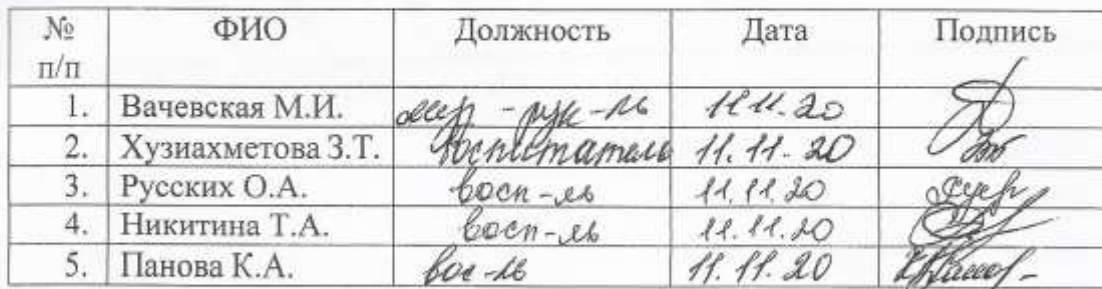 № п/п ФИО Должность Дата Подпись
1. Вачевская М.И. муз - рук-ль 11.11.20
2. Хузиахметова З.Т. Воспитатель 11.11.20
3. Русских О.А. восп-ль 11.11.20
4. Никитина Т.А. восп-ль 11.11.20
5. Панова К.А. вос-ль 11.11.20